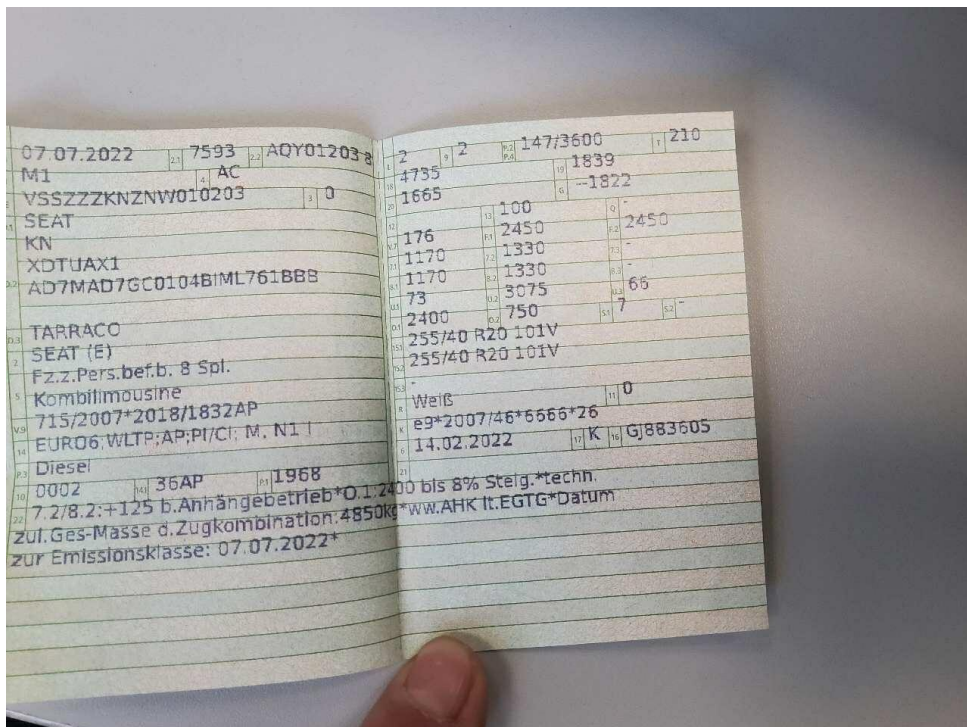 07.07.2022 2.1 7593 2.2 AQY01203 8
M1 4 AC
VSSZZZKNZNW010203 3 0
SEAT
KN
XDTUAX1
D.2 AD7MAD7GC0104BIML761BBB
D.3 TARRACO
2 SEAT (E)
Fz.z.Pers.bef.b. 8 Spl.
5 Kombilimousine
V.9 715/2007*2018/1832AP
14 EURO6;WLTP;AP;PI/CI; M, N1 I
P.3 Diesel
10 0002 14.1 36AP P.1 1968
L 2 9 2 P.2 P.4 147/3600 T 210
18 4735 19 1839
20 1665 G --1822
12 - 13 100 Q -
V.7 176 F.1 2450 F.2 2450
7.1 1170 7.2 1330 7.3 -
8.1 1170 8.2 1330 8.3 -
U.1 73 U.2 3075 U.3 66
O.1 2400 O.2 750 S.1 7 S.2 -
15.1 255/40 R20 101V
15.2 255/40 R20 101V
15.3 -
R Weiß 11 0
K e9*2007/46*6566*26
6 14.02.2022 17 K 16 GJ883605
21
22 7.2/8.2:+125 b.Anhängebetrieb*O.1:2400 bis 8% Steig.*techn.
zul.Ges-Masse d.Zugkombination:4850kg*ww.AHK lt.EGTG*Datum
zur Emissionsklasse: 07.07.2022*